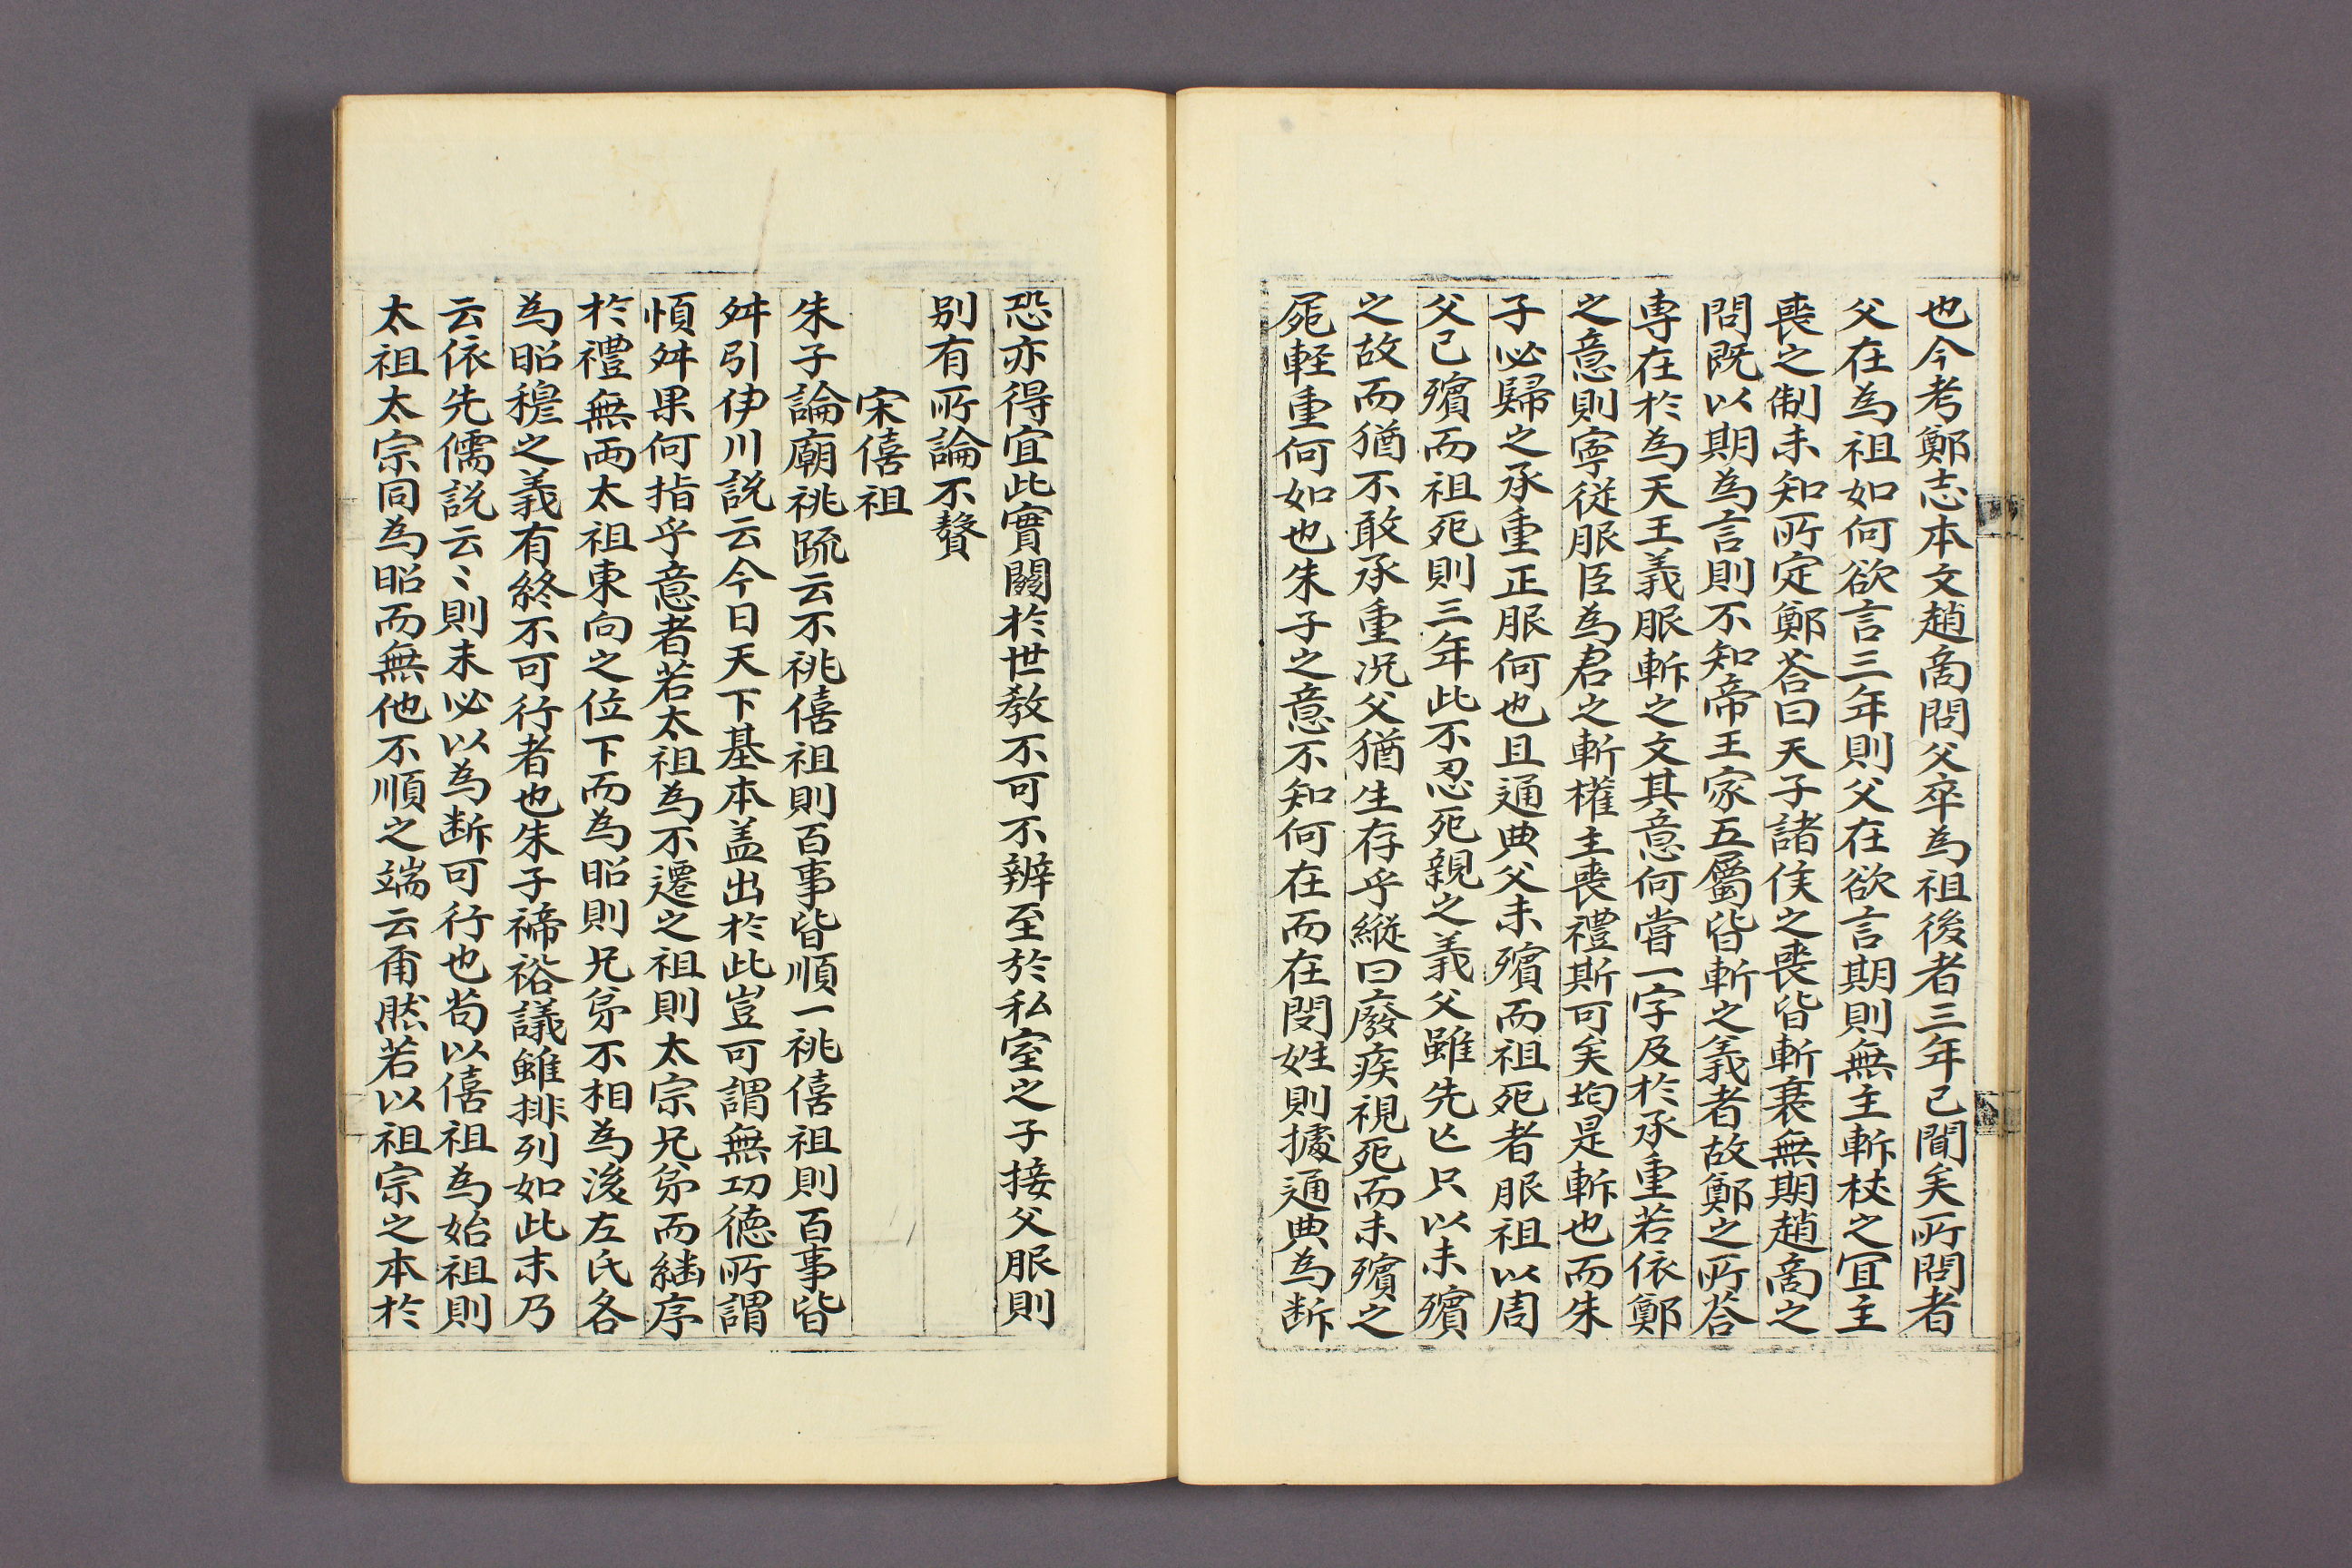 也今考鄭志本文趙商問父卒為祖後者三年已聞矣所問者
父在為祖如何欲言三年則父在欲言期則無主斬杖之宜主
喪之制未知所定鄭荅曰天子諸侯之喪皆斬衰無期趙商之
問既以期為言則不知帝王家五屬皆斬之義者故鄭之所荅
專在於為天王義服斬之文其意何嘗一字及於承重若依鄭
之意則寧從服臣為君之斬權主喪禮斯可矣均是斬也而朱
子必歸之承重正服何也且通典父未殯而祖死者服祖以周
父已殯而祖死則三年此不忍死親之義父雖先亡只以未殯
之故而猶不敢承重况父猶生存乎縱曰廢疾視死而未殯之
屍軽重何如也朱子之意不知何在而在閔姓則據通典為断
恐亦得宜此實關於世教不可不辨至於私室之子接父服則
别有所論不贅
宋僖祖
朱子論廟祧䟽云不祧僖祖則百事皆順一祧僖祖則百事皆
舛引伊川說云今日天下基本盖出於此豈可謂無功德所謂
愼舛果何指乎意者若太祖為不遷之祖則太宗兄弟而継序
於禮無両太祖東向之位下而為昭則兄弟不相為後左氏各
為昭穆之義有終不可行者也朱子禘祫議雖排列如此末乃
云依先儒說云〻則未必以為断可行也苟以僖祖為始祖則
太祖太宗同為昭而無他不順之端云甭然若以祖宗之本於